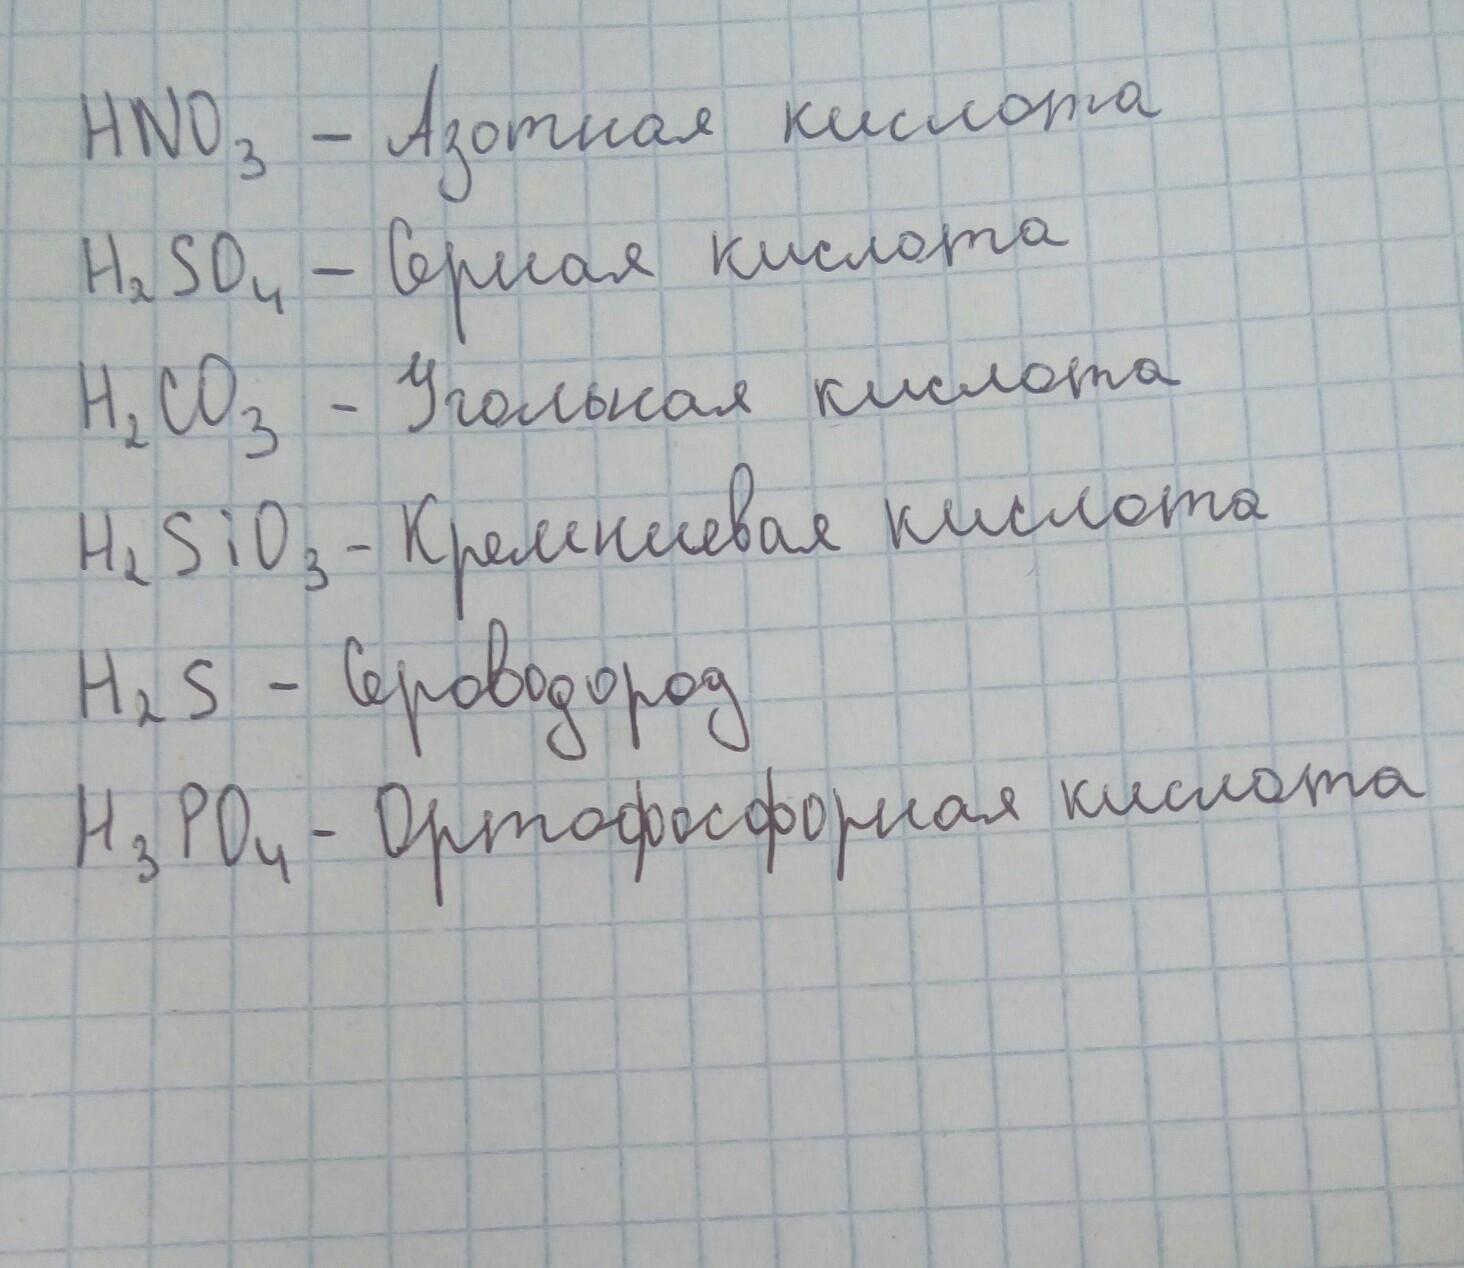 HNO₃ – Азотная кислота
H₂SO₄ – Серная кислота
H₂CO₃ – Угольная кислота
H₂SiO₃ – Кремниевая кислота
H₂S – Сероводород
H₃PO₄ – Ортофосфорная кислота